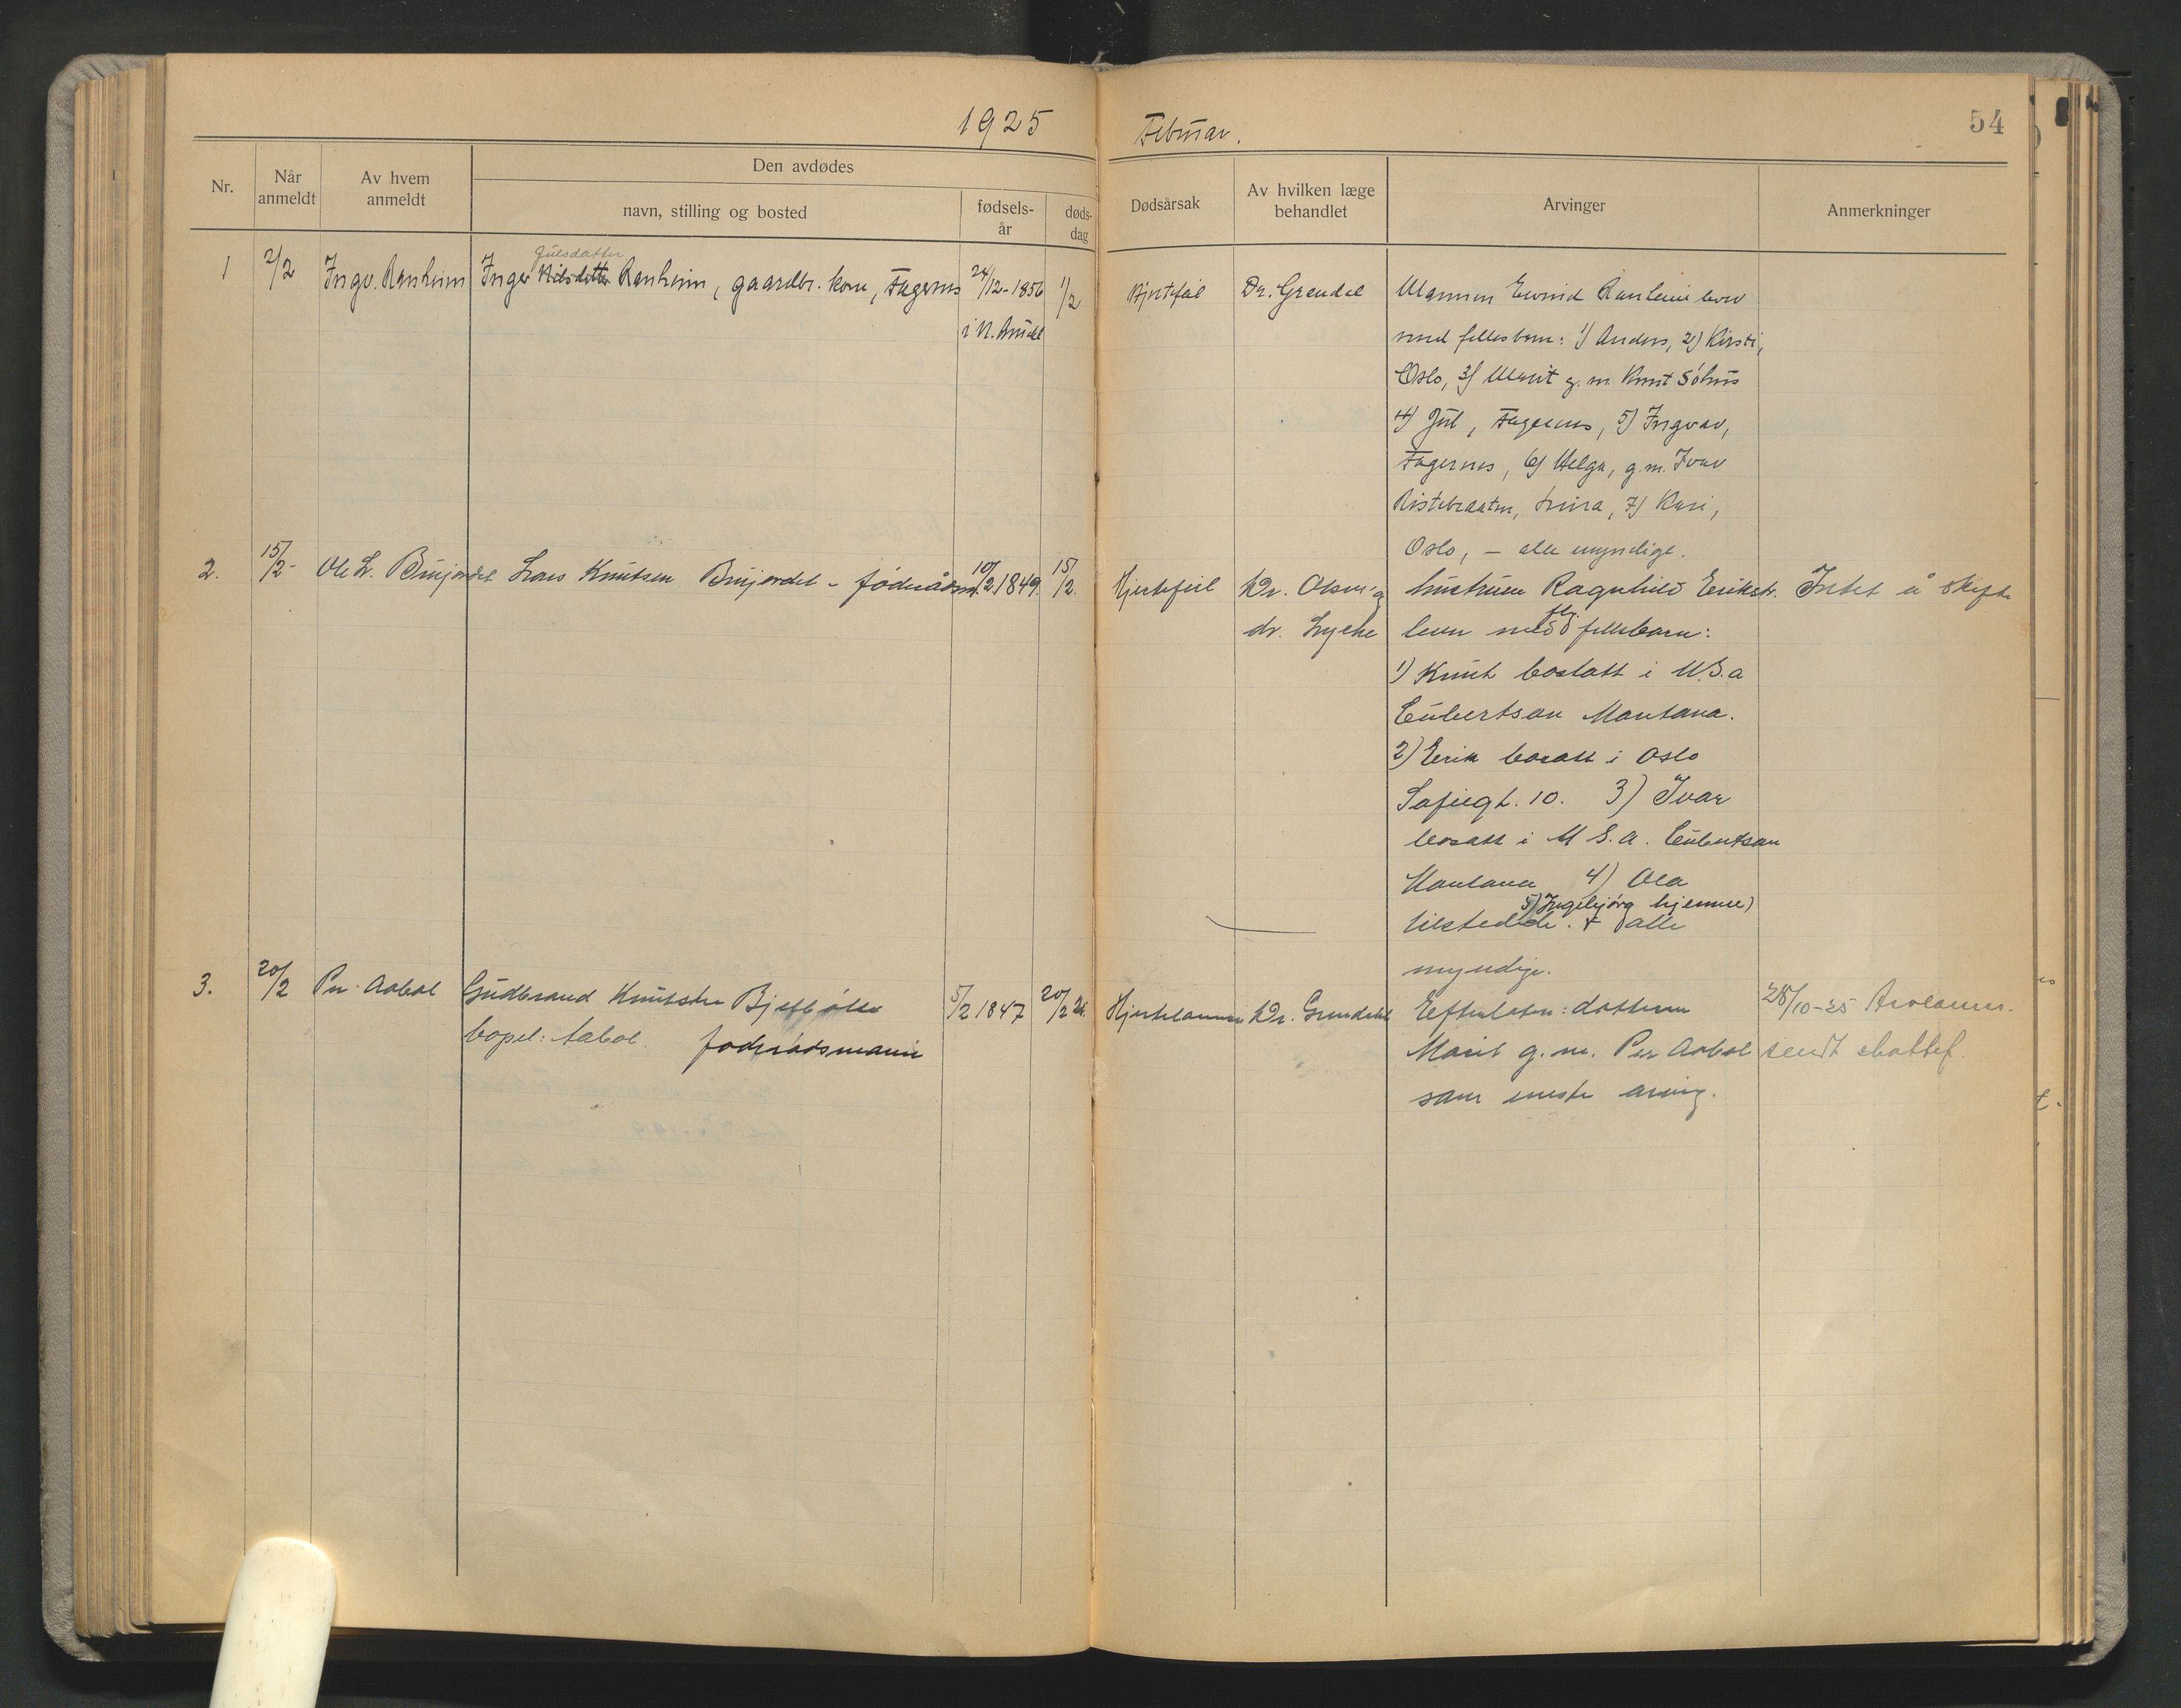 1925 Februar. 54
Nr. Når anmeldt Av hvem anmeldt Den avdødes navn, stilling og bosted fødsels-år døds-dag Dødsårsak Av hvilken læge behandlet Arvinger Anmerkninger
Julsdatter
1 2/2 Ingv. Ranheim Inger Nilsdatter Ranheim, gaardbr. kone, Fagernes 24/12-1856 1/2 Hjertefeil Dr. Grendal Mannen Eivind Ranheim lever
i N. Aurdal med fellesbarn: 1) Anders, 2) Kirsti,
Oslo, 3) Marit g. m. Knut Søhus
4) Jul, Fagernes, 5) Ingvar,
Fagernes, 6) Helga, g. m. Ivar
Ristebraaten, 7) Kari,
Oslo, – alle myndige.
2. 15/2- Ole L. Brujordet Lars Knutsen Brujordet – føderådsm. 10/2 1849. 15/2. Hjertefeil Dr. Olsen og hustruen Ragnhild Eriksdtr. Intet å skifte
dr. Lycke lever med flg. fellesbarn:
1) Knut bosatt i U.S.a
Culbertson Montana.
2) Erik bosatt i Oslo
Sofiegt. 10. 3) Ivar
bosatt i U S. A. Culbertson
Montana 4) Ola
5) Ingebjørg hjemme)
tilstede. + alle
myndige.
3. 20/2 Per Aabol Gudbrand Knutsen 5/2 1847 20/2 Dr. Grendahl Efterlater: datteren 28/10-25 Arveanm.
bopel: Aabol. føderådsmann Marit g. m. Per Aabol sendt skattef.
som eneste arving.